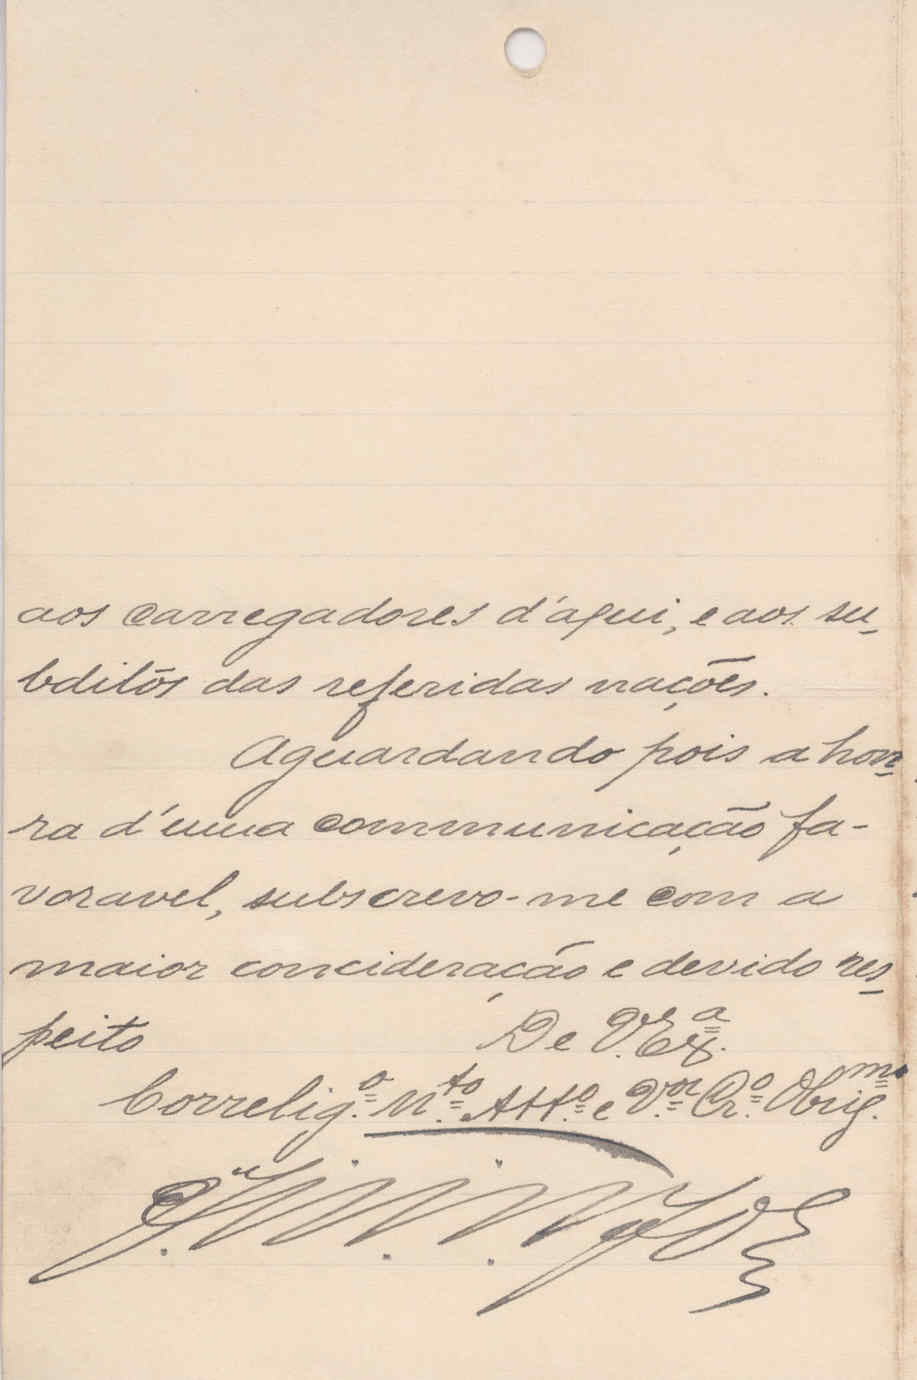 aos carregadores d'aqui, e aos su-
bditos das referidas nações.
Aguardando pois a hon-
ra d'uma communicação fa-
voravel, subscrevo-me com a
maior concideração e devido res-
peito
De V. Ex.ª
Correlig.º M.to Att.º e V.or Cr.º Obrig.mo